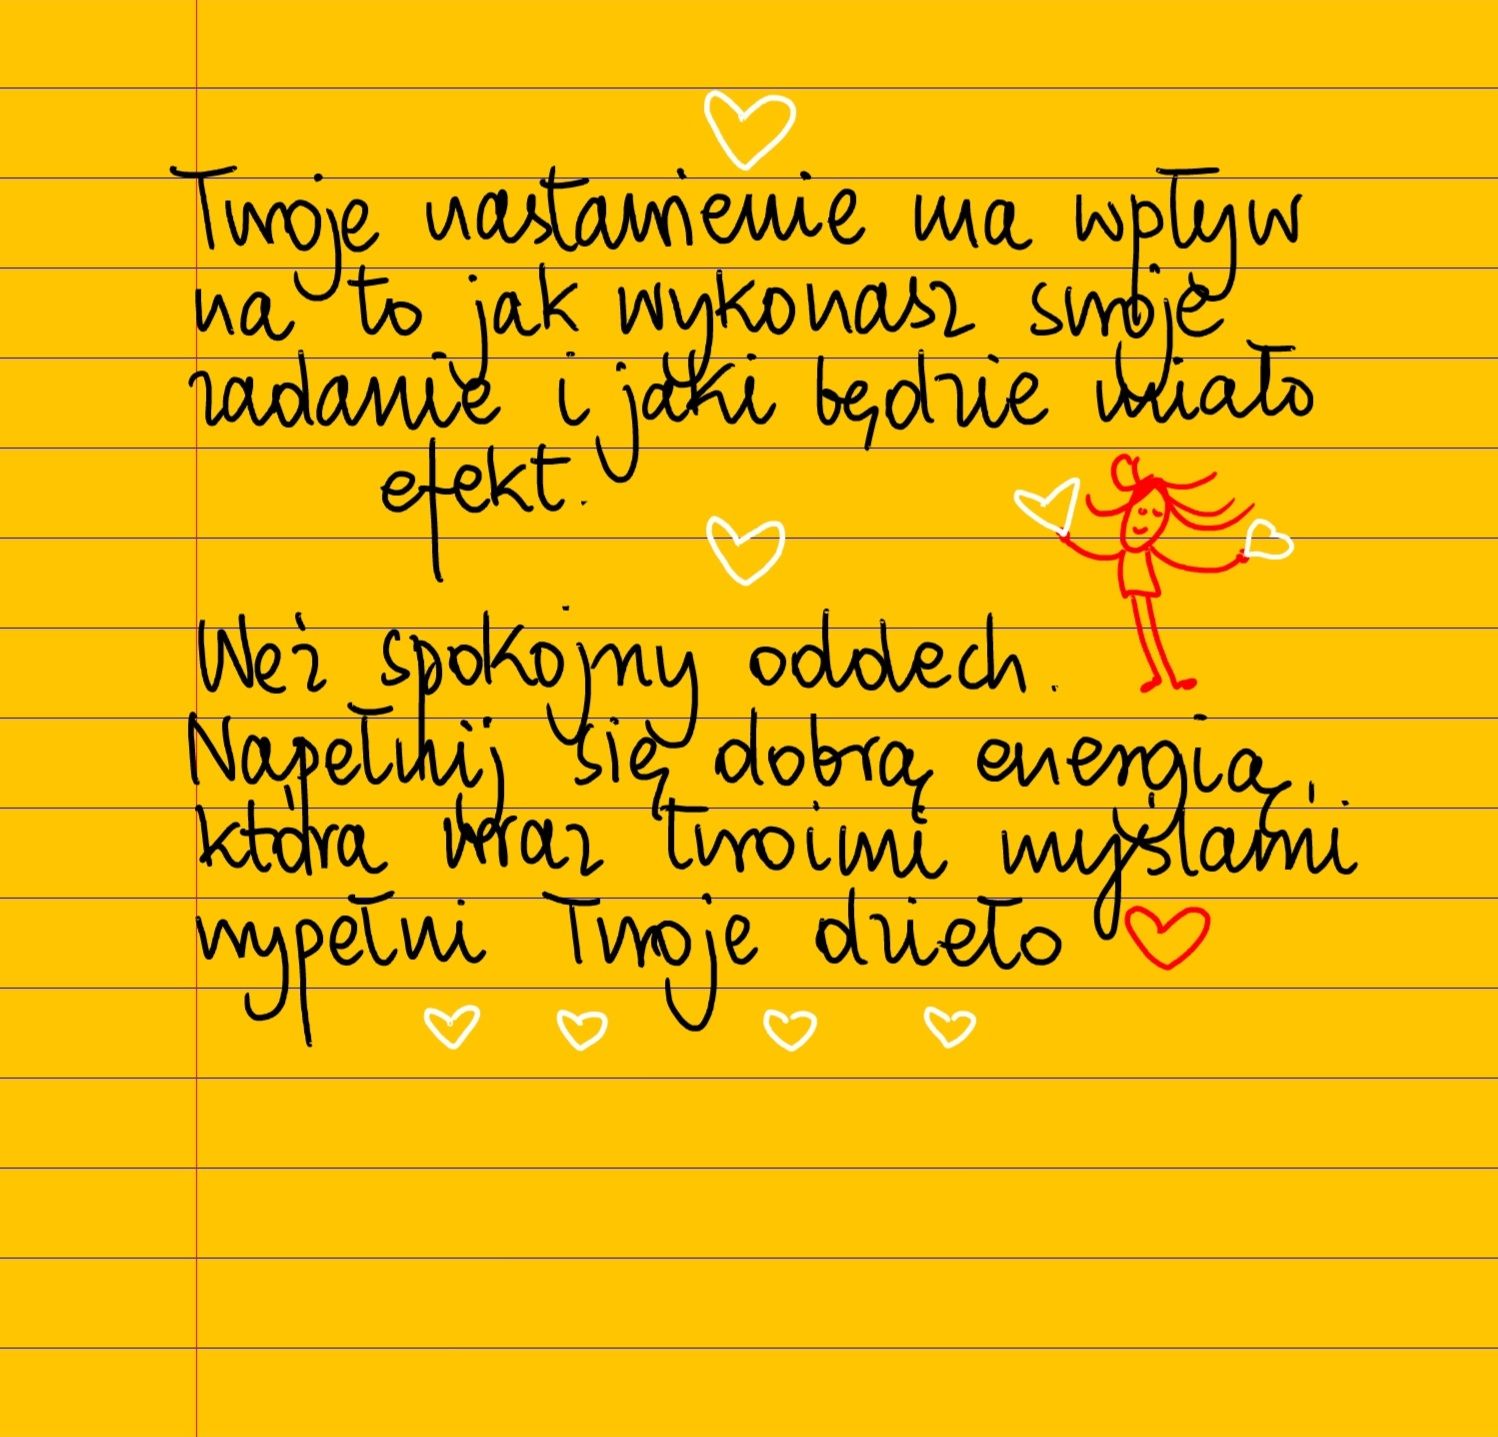 Twoje nastawienie ma wpływ
na to jak wykonasz swoje
zadanie i jaki będzie miało
efekt.
Weź spokojny oddech.
Napełnij się dobrą energią,
która wraz twoimi myślami
wypełni Twoje dzieło